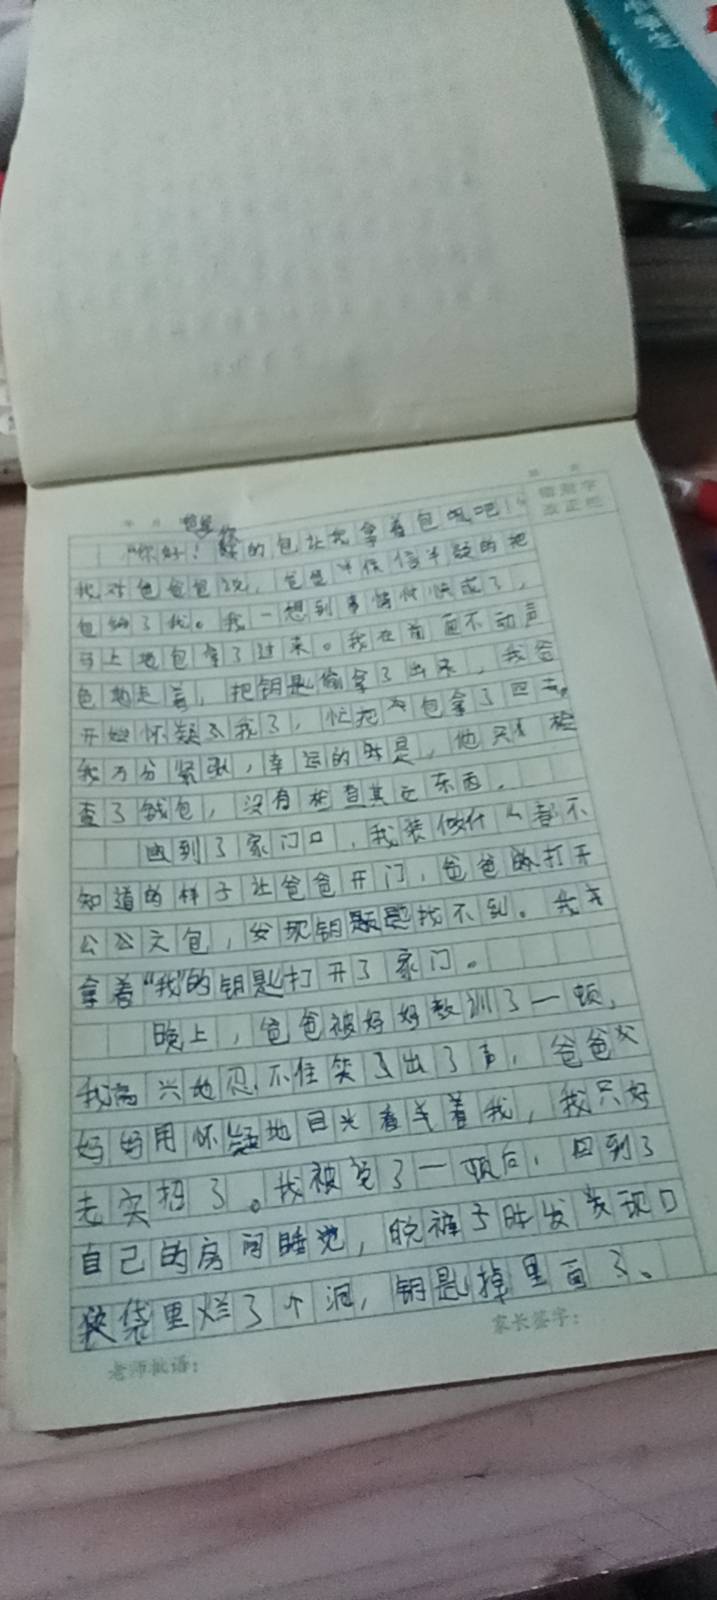 年 月
爸爸 你
"你好! 的包让我拿着包 吧!"
我对爸爸说,爸爸半信半疑的把
包给了我。我一想到事情快成了,
马上把包拿了过来。我在前面不动声
色地走着,把钥匙偷拿了出来,我爸
开始怀疑我了,忙把包拿了回去。
我万分紧张,幸运的是,他只检
查了钱包,没有检查其它东西。
回到了家门口,我装做什么都不
知道的样子让爸爸开门,爸爸打开
公文包,发现钥匙找不到。我
拿着"我"的钥匙打开了家门。
晚上,爸爸被好好教训了一顿,
我高兴地忍不住笑出了声,爸爸
妈妈用怀疑地目光看着我,我只好
老实招了。我被 了一顿后,回到了
自己的房间睡觉,脱裤子时发现口
袋里烂了个洞,钥匙掉里面了。
错别字
改正栏
老师批语:
家长签字: